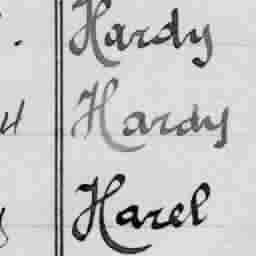 Hardy
4 Hardy
Harel